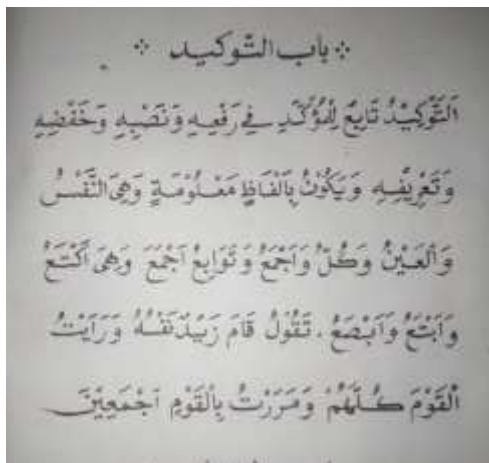 باب التوكيد
اَلتَّوْكِيْدُ تَابِعٌ لِلْمُؤَكَّدِ فِي رَفْعِهِ وَنَصْبِهِ وَخَفْضِهِ
وَتَعْرِيْفِهِ وَيَكُوْنُ بِاَلْفَاظٍ مَعْلُوْمَةٍ وَهِيَ النَّفْسُ
وَالْعَيْنُ وَكُلٌّ وَاَجْمَعُ وَتَوَابِعُ اَجْمَعَ وَهِيَ اَكْتَعُ
وَاَبْتَعُ وَاَبْصَعُ . تَقُوْلُ قَامَ زَيْدٌ نَفْسُهُ وَرَاَيْتُ
الْقَوْمَ كُلَّهُمْ وَمَرَرْتُ بِالْقَوْمِ اَجْمَعِيْنَ